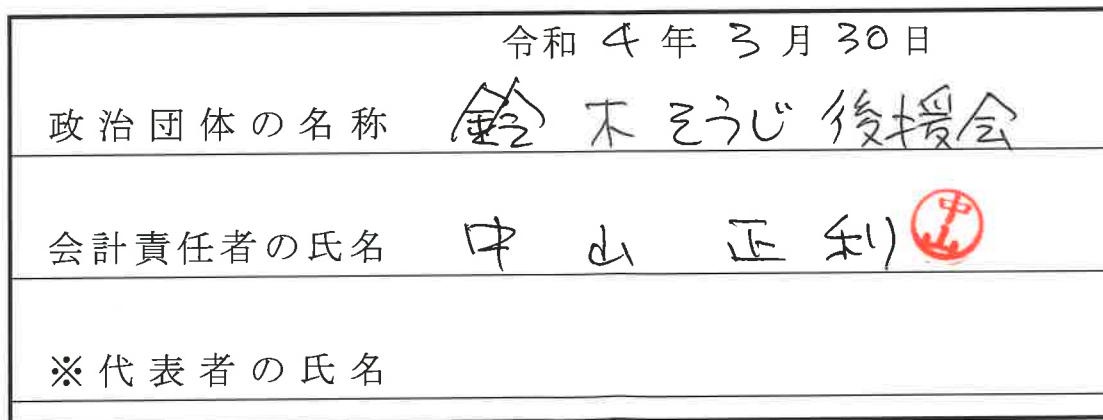 令和 4 年 3 月 30 日
政治団体の名称 鈴木そうじ後援会
会計責任者の氏名 中山 正利 中山
※代表者の氏名